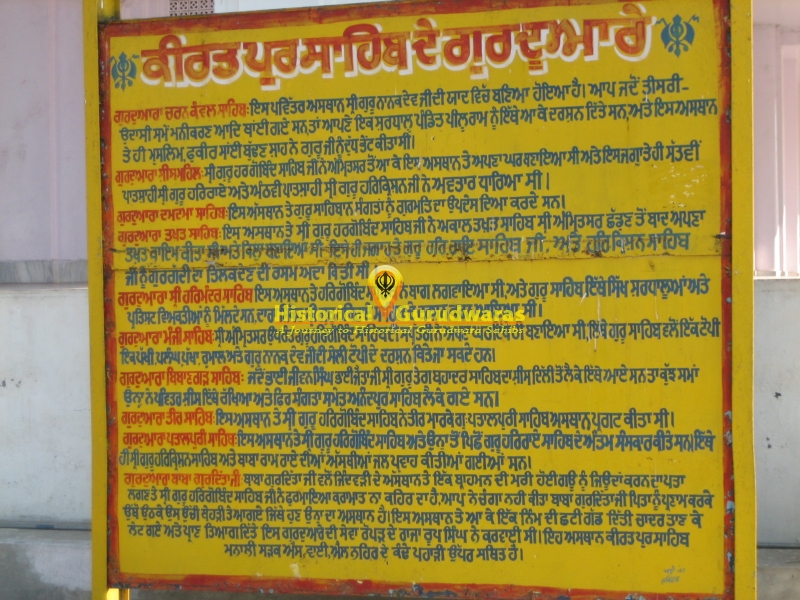 ਕੀਰਤਪੁਰ ਸਾਹਿਬ ਦੇ ਗੁਰਦੁਆਰੇ
ਗੁਰਦੁਆਰਾ ਚਰਨ ਕੰਵਲ ਸਾਹਿਬ: ਇਸ ਪਵਿੱਤਰ ਅਸਥਾਨ ਸ੍ਰੀ ਗੁਰੂ ਨਾਨਕ ਦੇਵ ਜੀ ਦੀ ਯਾਦ ਵਿੱਚ ਬਣਿਆ ਹੋਇਆ ਹੈ। ਆਪ ਜਦੋਂ ਤੀਸਰੀ-
ਉਦਾਸੀ ਸਮੇਂ ਮਨੀਕਰਣ ਆਦਿ ਥਾਂਈ ਗਏ ਸਨ, ਤਾਂ ਆਪਣੇ ਇਕ ਸਰਧਾਲੂ ਪੰਡਿਤ ਪੀਲੂ ਰਾਮ ਨੂੰ ਇੱਥੇ ਆ ਕੇ ਦਰਸ਼ਨ ਦਿੱਤੇ ਸਨ, ਅਤੇ ਇਸ ਅਸਥਾਨ
ਤੇ ਹੀ ਮੁਸਲਿਮ, ਫ਼ਕੀਰ ਸਾਂਈ ਬੁੱਢਣ ਸ਼ਾਹ ਨੇ ਗੁਰੂ ਜੀ ਨੂੰ ਦੁੱਧ ਭੇਂਟ ਕੀਤਾ ਸੀ।
ਗੁਰਦੁਆਰਾ ਸੀਸ ਮਹਿਲ: ਸ੍ਰੀ ਗੁਰੂ ਹਰਗੋਬਿੰਦ ਸਾਹਿਬ ਜੀ ਨੇ ਅੰਮ੍ਰਿਤਸਰ ਤੋਂ ਆ ਕੇ ਇਸ ਅਸਥਾਨ ਤੇ ਅਪਣਾ ਘਰ ਬਣਾਇਆ ਸੀ ਅਤੇ ਇਸ ਜਗ੍ਹਾ ਤੇ ਹੀ ਸੱਤਵੀਂ
ਪਾਤਸ਼ਾਹੀ ਸ੍ਰੀ ਗੁਰੂ ਹਰਿ ਰਾਇ ਅਤੇ ਅੱਠਵੀਂ ਪਾਤਸ਼ਾਹੀ ਸ੍ਰੀ ਗੁਰੂ ਹਰਿਕ੍ਰਿਸ਼ਨ ਜੀ ਨੇ ਅਵਤਾਰ ਧਾਰਿਆ ਸੀ।
ਗੁਰਦੁਆਰਾ ਦਮਦਮਾ ਸਾਹਿਬ: ਇਸ ਅਸਥਾਨ ਤੇ ਗੁਰੂ ਸਾਹਿਬਾਨ ਸੰਗਤਾਂ ਨੂੰ ਗੁਰਮਤਿ ਦਾ ਉਪਦੇਸ਼ ਦਿਆ ਕਰਦੇ ਸਨ।
ਗੁਰਦੁਆਰਾ ਤਖ਼ਤ ਸਾਹਿਬ: ਇਸ ਅਸਥਾਨ ਤੇ ਸ੍ਰੀ ਗੁਰੂ ਹਰਗੋਬਿੰਦ ਸਾਹਿਬ ਜੀ ਨੇ ਅਕਾਲ ਤਖ਼ਤ ਸਾਹਿਬ ਸ੍ਰੀ ਅੰਮ੍ਰਿਤਸਰ ਛੱਡਣ ਤੋਂ ਬਾਦ ਅਪਣਾ
ਤਖ਼ਤ ਕਾਇਮ ਕੀਤਾ ਸੀ ਅਤੇ ਕਿਲਾ ਬਣਾਇਆ ਸੀ ਇਸੇ ਹੀ ਜਗਾਹ ਤੇ ਗੁਰੂ ਹਰਿ ਰਾਇ ਸਾਹਿਬ ਜੀ, ਅਤੇ ਹਰਿਕ੍ਰਿਸ਼ਨ ਸਾਹਿਬ
ਜੀ ਨੂੰ ਗੁਰਗੱਦੀ ਦਾ ਤਿਲਕ ਦੇਣ ਦੀ ਰਸਮ ਅਦਾ ਕਿਤੀ ਸੀ
ਗੁਰਦੁਆਰਾ ਸ੍ਰੀ ਹਰਿਮੰਦਰ ਸਾਹਿਬ ਇਸ ਅਸਥਾਨ ਤੇ ਹਰਿਗੋਬਿੰਦ ਨੇ ਬਾਗ ਲਗਵਾਇਆ ਸੀ, ਅਤੇ ਗੁਰੂ ਸਾਹਿਬ ਇੱਥੇ ਸਿੱਖ ਸਰਧਾਲੂਆਂ ਅਤੇ
ਪ੍ਰਤਿਸ਼ਟ ਵਿਅਕਤੀਆਂ ਨੂੰ ਮਿਲਦੇ ਸਨ,
Historical Gurudwaras
A Journey to Historical Gurudwara Sahibs
ਗੁਰਦੁਆਰਾ ਮੰਜੀ ਸਾਹਿਬ: ਸ੍ਰੀ ਅੰਮ੍ਰਿਤਸਰ ਬਣਾਇਆ ਸੀ, ਇੱਥੇ ਗੁਰੂ ਸਾਹਿਬ ਵਲੋਂ ਇੱਕ ਟੋਪੀ
ਇਕ ਪੱਖੀ ਪਲੰਘ ਪੰਘਾ, ਰੁਮਾਲ ਅਤੇ ਗੁਰੂ ਨਾਨਕ ਦੇਵ ਜੀ ਦੀ ਸੇਲੀ ਟੋਪੀ ਦੇ ਦਰਸ਼ਨ ਕਿਤੇ ਜਾ ਸਕਦੇ ਹਨ।
ਗੁਰਦੁਆਰਾ ਬਿਬਾਣਗੜ ਸਾਹਿਬ: ਜਦੋਂ ਭਾਈ ਜੀਵਨ ਸਿੰਘ ਭਾਈ ਜੈਤਾ ਜੀ ਸ੍ਰੀ ਗੁਰੂ ਤੇਗ ਬਹਾਦਰ ਸਾਹਿਬ ਦਾ ਸੀਸ ਦਿੱਲੀ ਤੋਂ ਲੈਕੇ ਇੱਥੇ ਆਏ ਸਨ ਤਾਂ ਕੁੱਝ ਸਮਾਂ
ਉਨਾਂ ਨੇ ਪਵਿੱਤਰ ਸੀਸ ਇੱਥੇ ਰੱਖਿਆ ਅਤੇ ਫਿਰ ਸੰਗਤਾਂ ਸਮੇਤ ਅਨੰਦਪੁਰ ਸਾਹਿਬ ਲੈਕੇ ਗਏ ਸਨ।
ਗੁਰਦੁਆਰਾ ਤੀਰ ਸਾਹਿਬ: ਇਸ ਅਸਥਾਨ ਤੇ ਸ੍ਰੀ ਗੁਰੂ ਹਰਿਗੋਬਿੰਦ ਸਾਹਿਬ ਨੇ ਤੀਰ ਮਾਰਕੇ ਗੁ: ਪਤਾਲਪੁਰੀ ਸਾਹਿਬ ਅਸਥਾਨ ਪ੍ਰਗਟ ਕੀਤਾ ਸੀ।
ਗੁਰਦੁਆਰਾ ਪਤਾਲਪੁਰੀ ਸਾਹਿਬ: ਇਸ ਅਸਥਾਨ ਤੇ ਸ੍ਰੀ ਗੁਰੂ ਹਰਿਗੋਬਿੰਦ ਸਾਹਿਬ ਅਤੇ ਉਨਾਂ ਤੋਂ ਪਿਛੋਂ ਗੁਰੂ ਹਰਿਰਾਏ ਸਾਹਿਬ ਦੇ ਅੰਤਮ ਸੰਸਕਾਰ ਕੀਤੇ ਸਨ ਇੱਥੇ
ਹੀ ਸ੍ਰੀ ਗੁਰੂ ਹਰਿਕ੍ਰਿਸ਼ਨ ਸਾਹਿਬ ਅਤੇ ਬਾਬਾ ਰਾਮ ਰਾਏ ਦੀਆਂ ਅਸਥੀਆਂ ਜਲ ਪ੍ਰਵਾਹ ਕੀਤੀਆਂ ਗਈਆਂ ਸਨ।
ਗੁਰਦੁਆਰਾ ਬਾਬਾ ਗੁਰਦਿੱਤਾ ਜੀ: ਬਾਬਾ ਗੁਰਦਿੱਤਾ ਜੀ ਵਲੋਂ ਜਿੰਦਵੜੀ ਦੇ ਅਸਥਾਨ ਤੇ ਇੱਕ ਬ੍ਰਾਹਮਨ ਦੀ ਮਰੀ ਹੋਈ ਗਊ ਨੂੰ ਜਿਉਂਦਾ ਕਰਨ ਦਾ ਪਤਾ
ਲਗਣ ਤੇ ਸ੍ਰੀ ਗੁਰੂ ਹਰਿਗੋਬਿੰਦ ਸਾਹਿਬ ਜੀ ਨੇ ਫੁਰਮਾਇਆ ਕਰਾਮਾਤ ਨਾਂ ਕਹਿਰ ਦਾ ਹੈ, ਆਪ ਨੇ ਚੰਗਾ ਨਹੀਂ ਕੀਤਾ ਬਾਬਾ ਗੁਰਦਿੱਤਾ ਜੀ ਪਿਤਾ ਨੂੰ ਪ੍ਰਣਾਮ ਕਰਕੇ
ਉਥੋਂ ਉਠਕੇ ਉਸ ਉੱਚੀ ਥੇਹੜੀ ਤੇ ਆ ਗਏ ਜਿਥੇ ਹੁਣ ਉਨਾਂ ਦਾ ਅਸਥਾਨ ਹੈ। ਇਸ ਅਸਥਾਨ ਤੇ ਆ ਕੇ ਇੱਕ ਨਿੰਮ ਦੀ ਛਟੀ ਗੱਡ ਦਿੱਤੀ ਚਾਦਰ ਤਾਣ ਕੇ
ਲੇਟ ਗਏ ਅਤੇ ਪ੍ਰਾਣ ਤਿਆਗ ਦਿੱਤੇ ਇਸ ਗੁਰਦੁਆਰੇ ਦੀ ਸੇਵਾ ਰੋਪੜ ਦੇ ਰਾਜਾ ਰੂਪ ਸਿੰਘ ਨੇ ਕਰਵਾਈ ਸੀ। ਇਹ ਅਸਥਾਨ ਕੀਰਤਪੁਰ ਸਾਹਿਬ
ਮਨਾਲੀ ਸੜਕ ਐਸ.ਵਾਈ.ਐਲ ਨਹਿਰ ਦੇ ਕੰਢੇ ਪਹਾੜੀ ਉੱਪਰ ਸਥਿਤ ਹੈ।